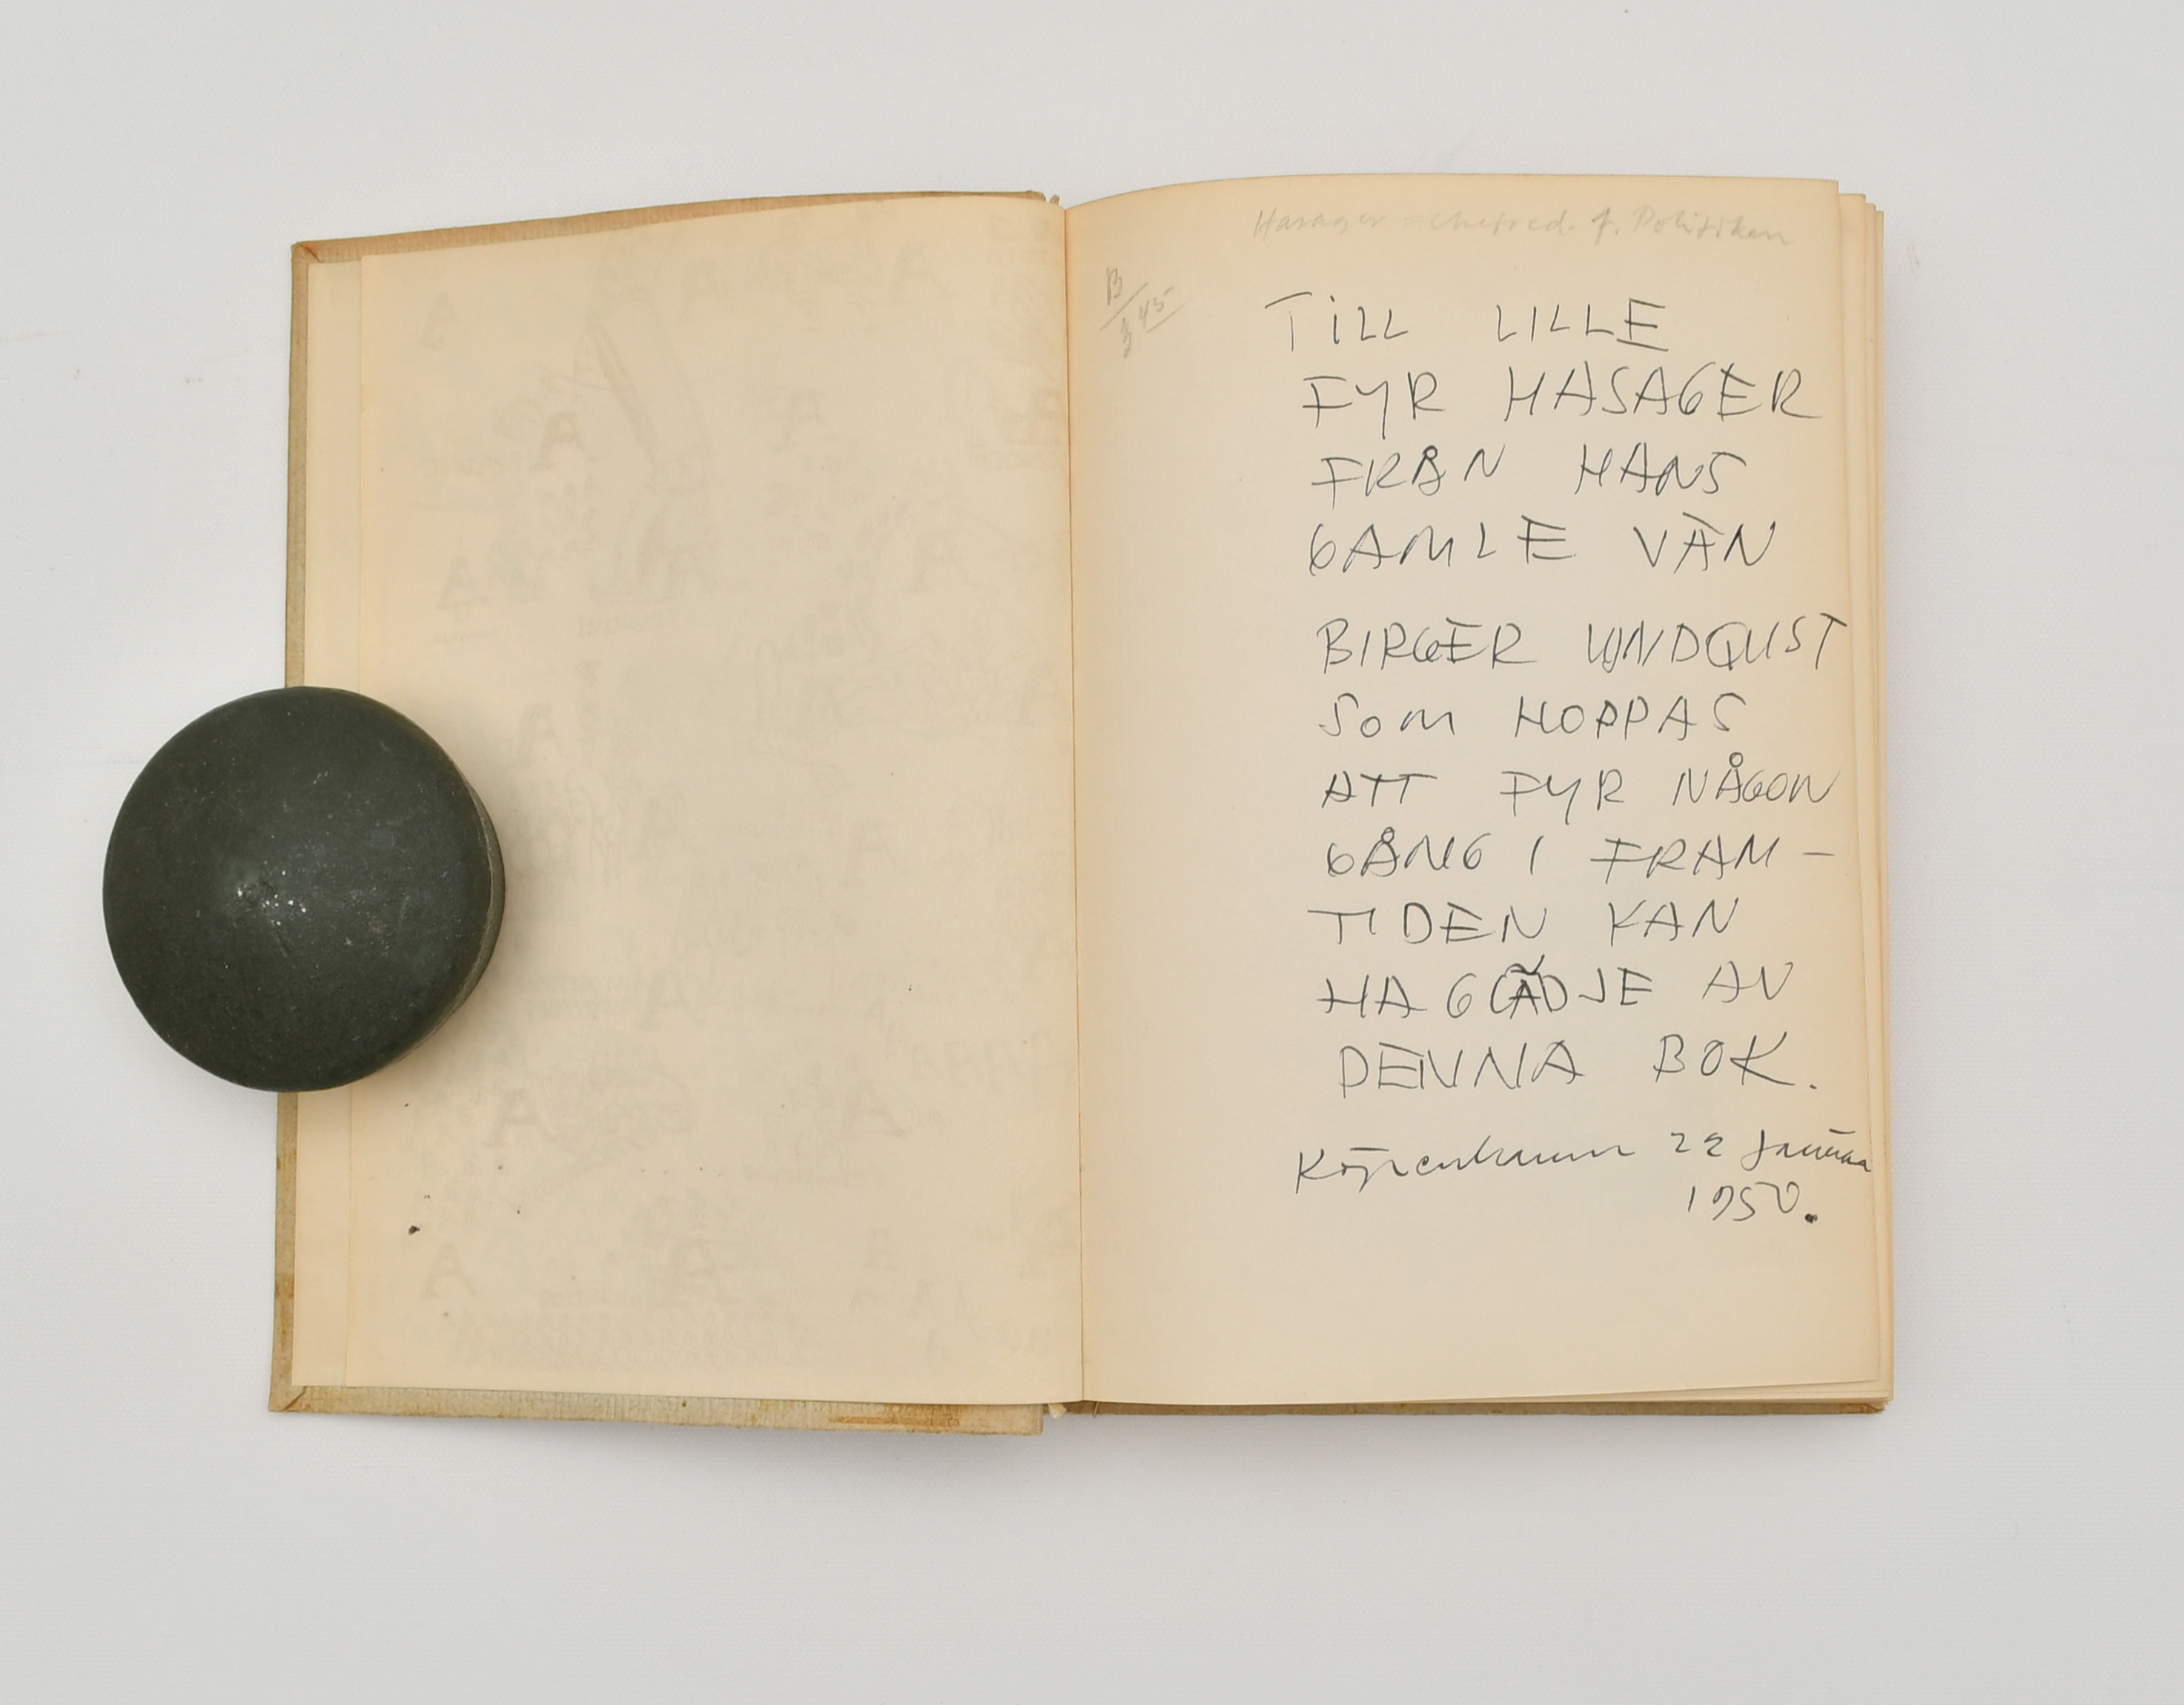 Hasager = chefred. f. Politiken
B/345
TiLL LILLE
FYR HASAGER
FRÅN HANS
GAMLE VÄN
BIRGER LUNDQUIST
SOM HOPPAS
ATT FYR NÅGON
GÅNG I FRAM-
TIDEN KAN
HA GLÄDJE AV
DENNA BOK.
Köpenhamn 22 Januari
1950.